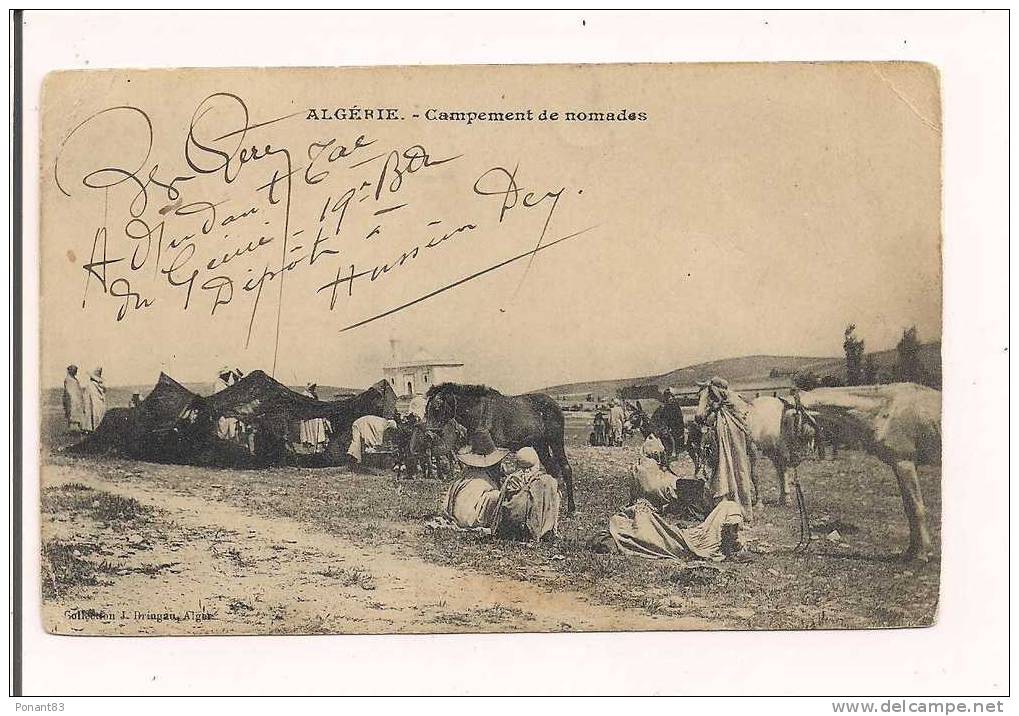 ALGÉRIE. - Campement de nomades
Adjudant
du Génie - 19e Bon
Dépôt à
Hussein Dey.
Collection J. Bringau, Alger
Ponant83
www.delcampe.net